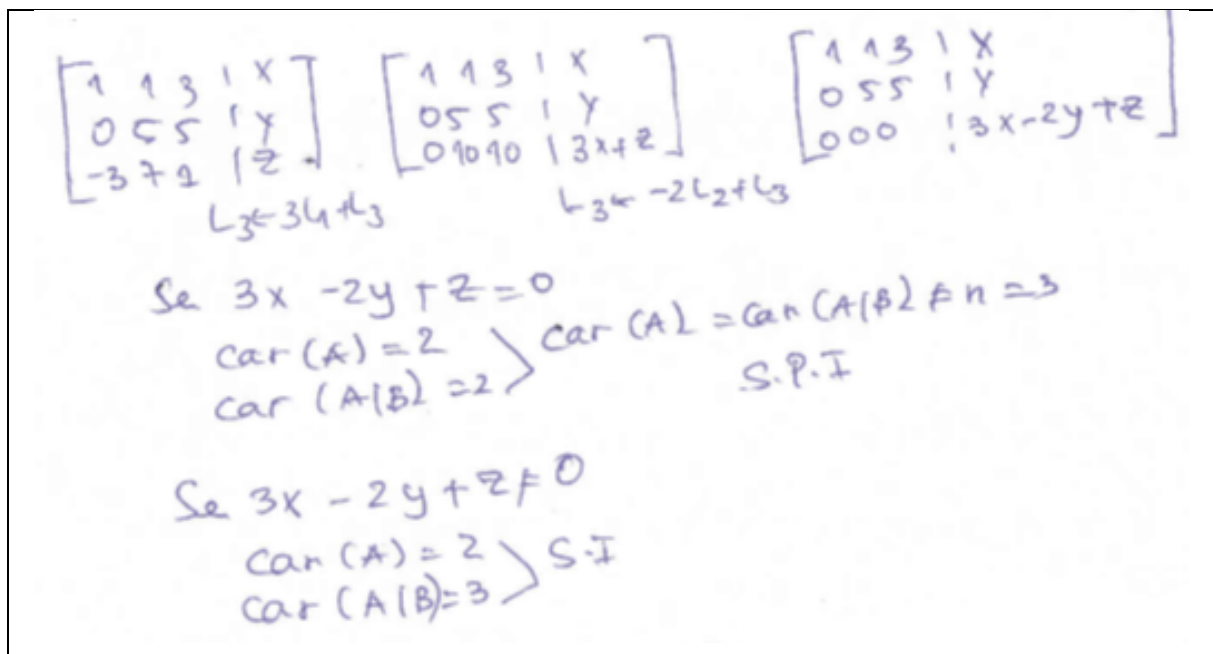 [1 1 3 | X] [1 1 3 | X] [1 1 3 | X]
[0 5 5 | Y] [0 5 5 | Y] [0 5 5 | Y]
[-3 7 1 | Z] [0 10 10 | 3x+z] [0 0 0 | 3x-2y+z]
L3←3L1+L3 L3←-2L2+L3
Se 3x -2y +z=0
car (A) = 2
car (A|B) = 2 > car (A) = car (A|B) ≠ n = 3
S.P.I
Se 3x - 2y + z ≠ 0
car (A) = 2
car (A|B)=3 > S.I